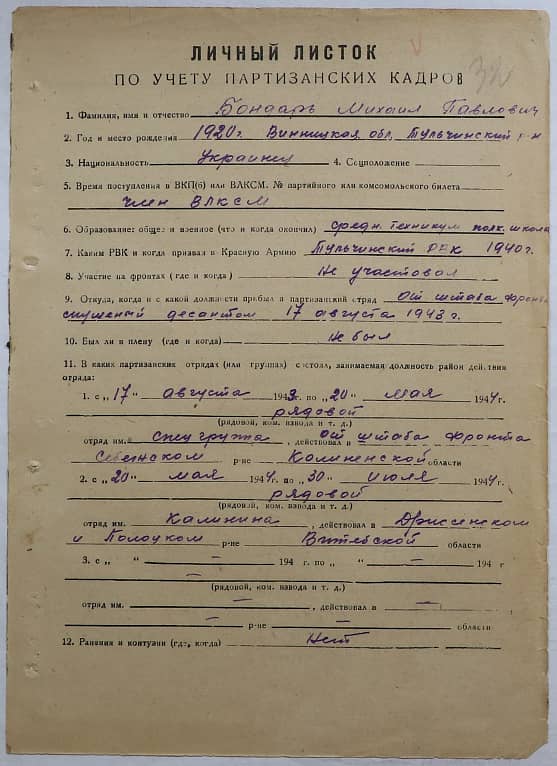 32
ЛИЧНЫЙ ЛИСТОК
ПО УЧЕТУ ПАРТИЗАНСКИХ КАДРОВ
1. Фамилия, имя и отчество Бондарь Михаил Павлович
2. Год и место рождения 1920г. Винницкая обл. Тульчинский р-н
3. Национальность Украинец 4. Соцположение
5. Время поступления в ВКП(б) или ВЛКСМ. № партийного или комсомольского билета
член ВЛКСМ
6. Образование: общее и военное (что и когда окончил) средн. техникум полк. школа
7. Каким РВК и когда призван в Красную Армию Тульчинский РВК 1940г.
8. Участие на фронтах (где и когда) Не участовал
9. Откуда, когда и с какой должности прибыл в партизанский отряд От штаба фронта
десантом 17 августа 1943 г.
10. Был ли в плену (где и когда) Не был
11. В каких партизанских отрядах (или группах) состоял, занимаемая должность район действия
отряда:
1. с „17" августа 1943г. по „20" мая 1944г.
рядовой
(рядовой, ком. взвода и т. д.)
отряд им. спецгруппа, действовал в От штаба фронта
Себежском р-не Калиненской области
2. с „20" мая 1944г. по „30" июля 1944г
рядовой
(рядовой, ком. взвода и т. д.)
отряд им. Калинина, действовал в Дриссенском
и Полоцком р-не Витебской области
3. с „ " — 194 г. по „ " — 194 г
—
(рядовой, ком. взвода и т. д.)
отряд им. —, действовал в —
— р-не — области
12. Ранения и контузии (где, когда) Нет